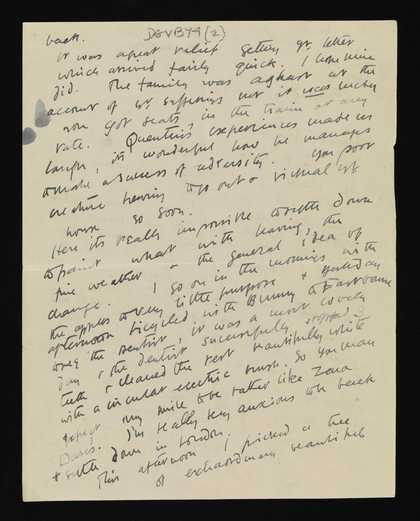 back. DGVBY4 (2)
It was a great relief getting yr letter
which arrived fairly quick. I hope mine
did. The family was aghast at the
account of yr sufferings but it was lucky
you got seats in the train at any
rate. Quentin's experiences made us
laugh, its wonderful how he manages
to make a success of adversity. You poor
creature having to go out & victual yr
house so soon.
Here its really impossible to settle down
to paint what with leaving, the
fine weather & the general idea of
change. I go on in the mornings with
the apples to very little purpose & yesterday
afternoon bicycled with Bunny to Eastbourne
to see the dentist, it was a most lovely
day & the dentist successfully stopped 2
teeth & cleaned the rest beautifully white
with a circular electric brush. So you may
expect my smile to be rather like Zena
Dares. I'm really very anxious to be back
& settle down in London.
This afternoon I picked a tree
of extraordinary beautiful